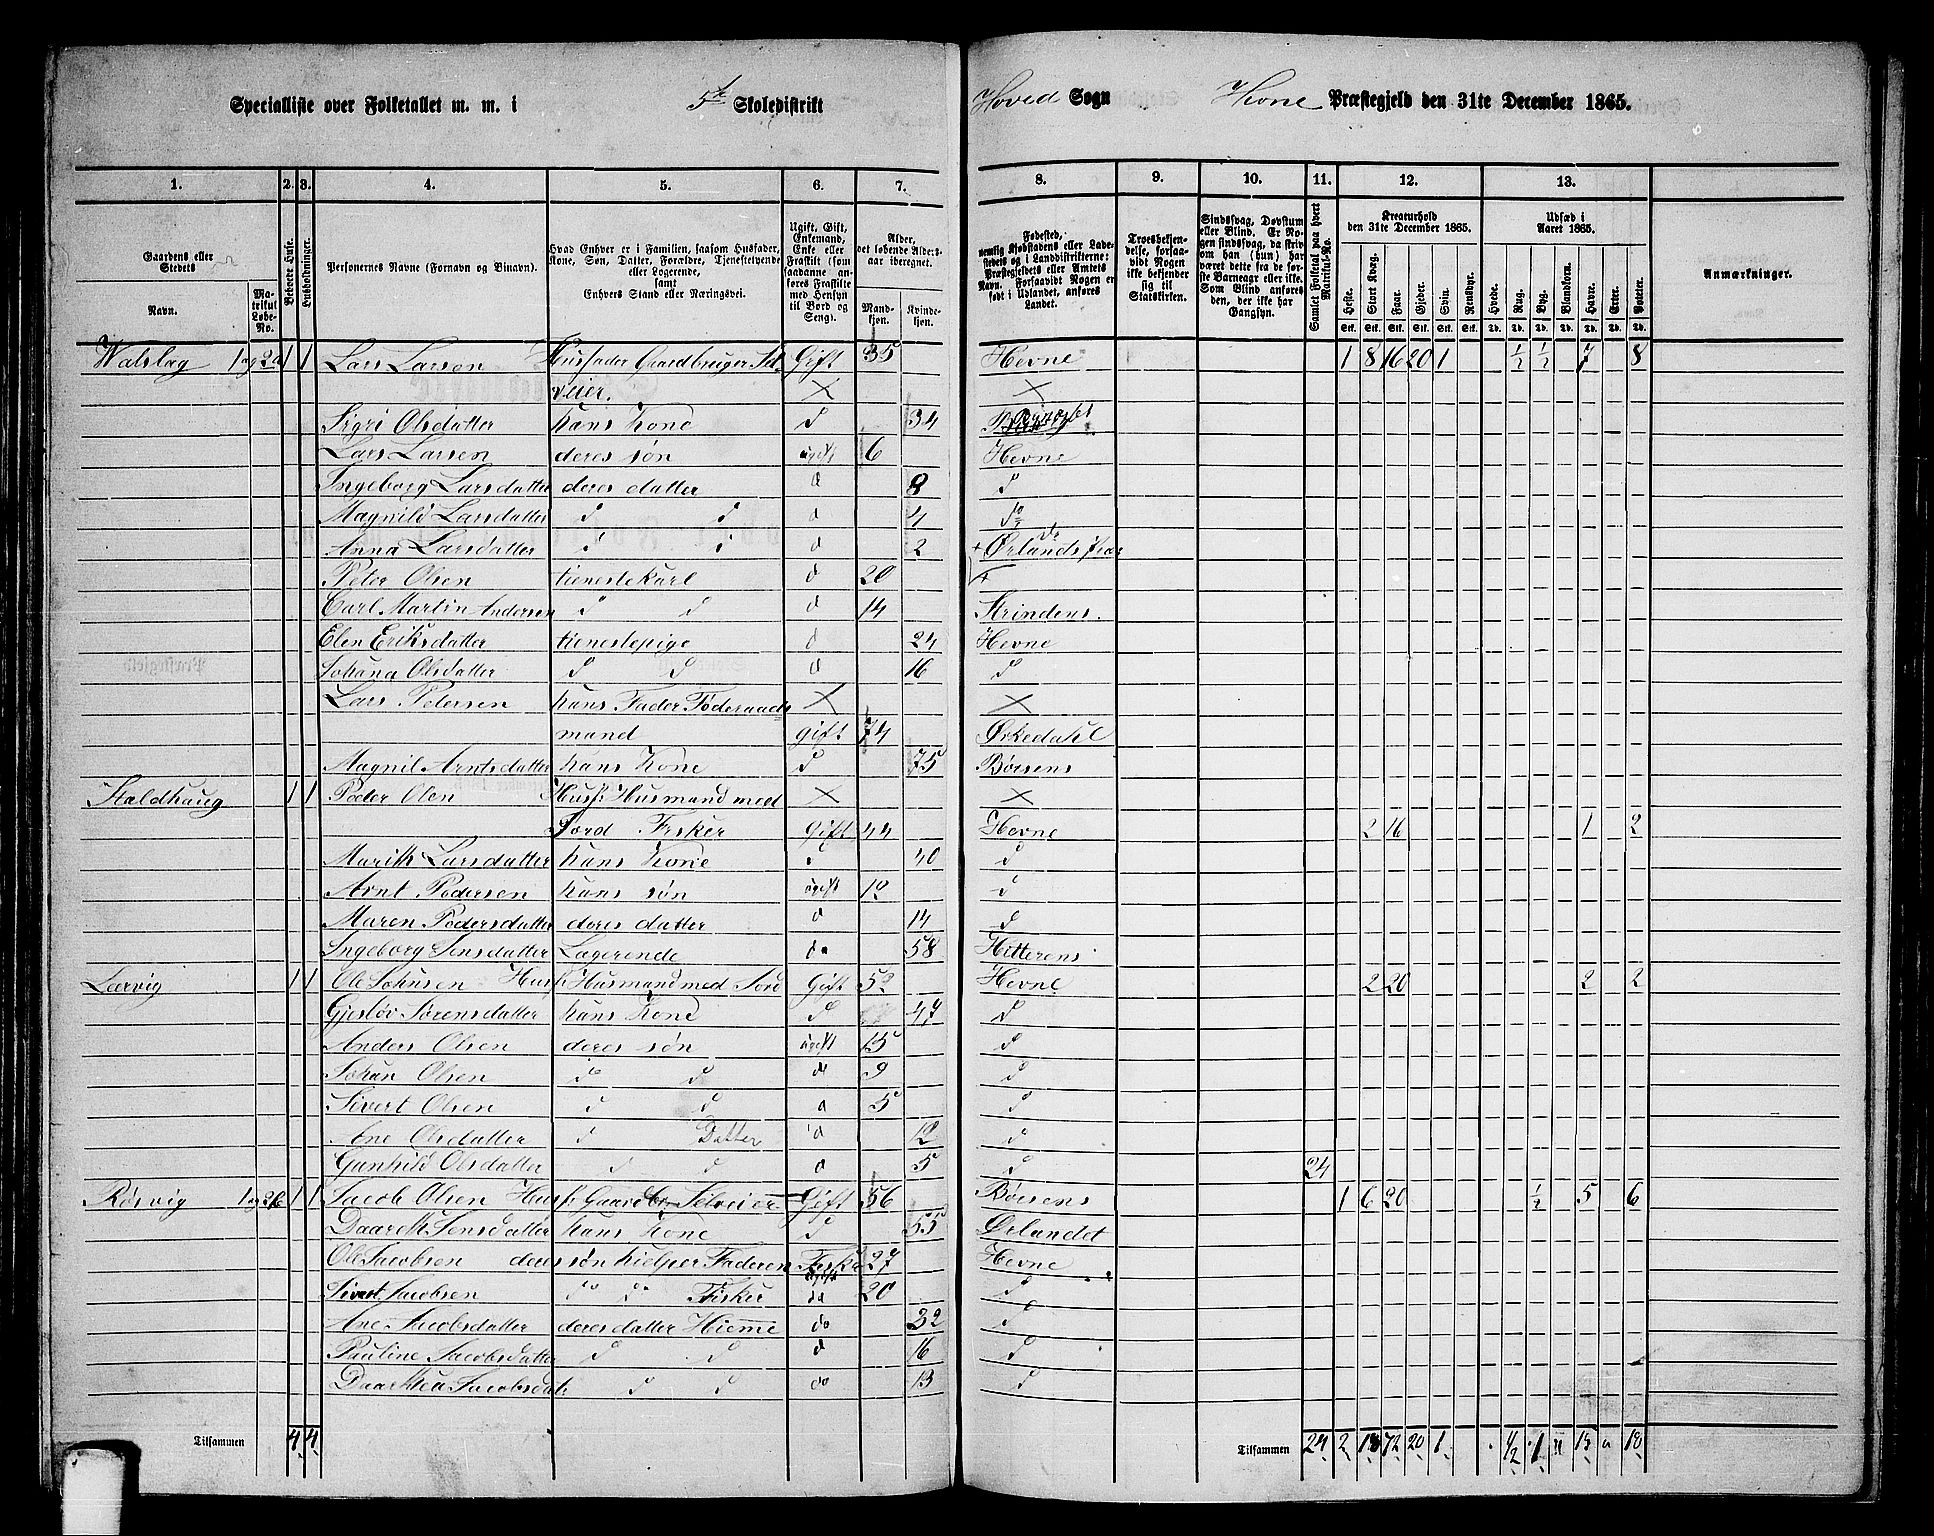 Specialliste over Folketallet m. m. i 5te Skoledistrikt Hoved Sogn Hevne Præstegjeld den 31te December 1865.
1. 2. 3. 4. 5. 6. 7. 8. 9. 10. 11. 12. 13.
Gaardens eller Stedets
Navn. Matrikul Løbe-No.
Beboede Huse.
Husholdninger.
Personernes Navne (Fornavn og Binavn).
Hvad Enhver er i Familien, saasom Husfader, Kone, Søn, Datter, Forældre, Tjenestetyende eller Logerende, samt Enhvers Stand eller Næringsvei.
Ugift, Gift, Enkemand, Enke eller Fraskilt (som saadanne anføres Fraskilte med Hensyn til Bord og Seng).
Alder, det løbende Aldersaar iberegnet.
Mandkjøn. Kvindekjøn.
Fødested, nemlig Kjøbstadens eller Ladestedets og i Landdistrikterne: Præstegjeldets eller Amtets Navn. Forsaavidt Nogen er født i Udlandet, anføres Landet.
Troesbekjendelse, forsaavidt Nogen ikke bekjender sig til Statskirken.
Sindssvag, Døvstum eller Blind. Er Nogen sindssvag, da skrives om han (hun) har været dette fra de første Barneaar eller ikke. Som Blind anføres den, der ikke har Gangsyn.
Samlet Folketal paa hvert Matrikul-No.
Kreaturhold den 31te December 1865.
Heste. Stort Kvæg. Faar. Gjeder. Svin. Rensdyr.
Udsæd i Aaret 1865.
Hvede. Rug. Byg. Blandkorn. Havre. Erter. Poteter.
Anmærkninger.
Walslag 1 og 2a 1 1 Lars Larsen Husfader Gaardbruger Sel- Gift 35 Hevne 1 8 16 20 1 ½ ½ 7 8
veier. × ×
Sigri Olsdatter hans Kone d 34
Lars Larsen deres søn ugift 6 Hevne
Ingeborg Larsdatter deres datter d 8 d
Magnild Larsdatter d d d 4 do
Anna Larsdatter d d d 2 do
Peter Olsen tienestekarl d 20 + Ørlands
Carl Martin Andersen d d d 14 Strindens.
Elen Eriksdatter tienestepige d 24 Hevne
Johana Olsdatter d d d 16 d
Lars Pedersen hans Fader Föderaads × ×
mand gift 74 Ørkedahl
Magnil Arntsdatter hans Kone d 75 Börsens
Haldhaug 1 1 Peder Olen Husf: Husmand med × ×
Jord Fisker Gift 44 Hevne 2 16 1 2
Marith Larsdatter hans Kone d 40 d
Arnt Pedersen hans søn ugift d
Maren Pedersdatter deres datter d 14 d
Ingeborg Jensdatter Lagerende do 58 Hitterens
Lervig 1 1 Ole Johnsen Husf: Husmand med Jord Gift 52 Hevne 2 20 2 2
Gjesløv Sörensdatter hans Kone d 47 d
Anders Olsen deres søn ugift 15 d
Johan Olsen d d d 9 d
Sivert Olsen d d d 5 d
Ane Olsdatter d Datter d 12 d
Gunhild Olsdatter d d d 5 d 24
Rösvig 1 og 2b 1 1 Jacob Olsen Husf: Gaardbr Selveier Gift 56 Börsens 1 6 20 ½ 5 6
Daareth Jensdatter hans Kone d 55 Ørlandet
Ole Jacobsen deres søn hielper Faderen Fisker ugift 27 Hevne
Sivert Jacobsen do do Fisker do 20 d
Ane Jacobsdatter deres datter Hiemme do 32 d
Pauline Jacobsdatter d d d 16 d
Daarthea Jacobsdat: d d do 13 d
Tilsammen 4 4 Tilsammen 24 2 18 72 20 1 ½ 1 " 15 " 18